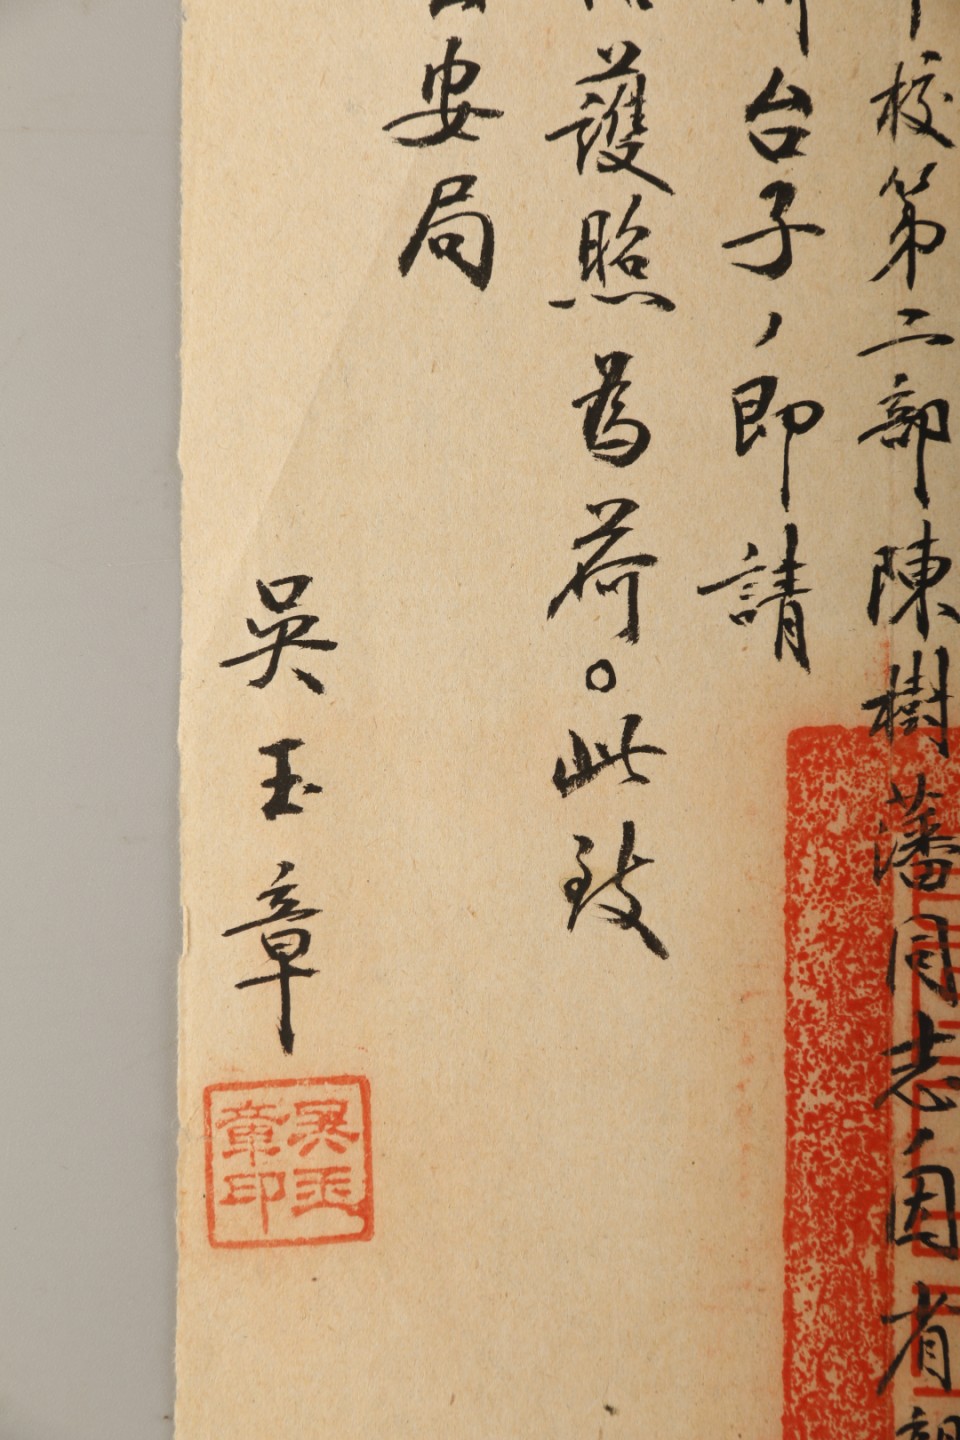 校第二部陳樹藩同志,因省
台子,即請
護照為荷。此致
安局
吳玉章
吳玉章印